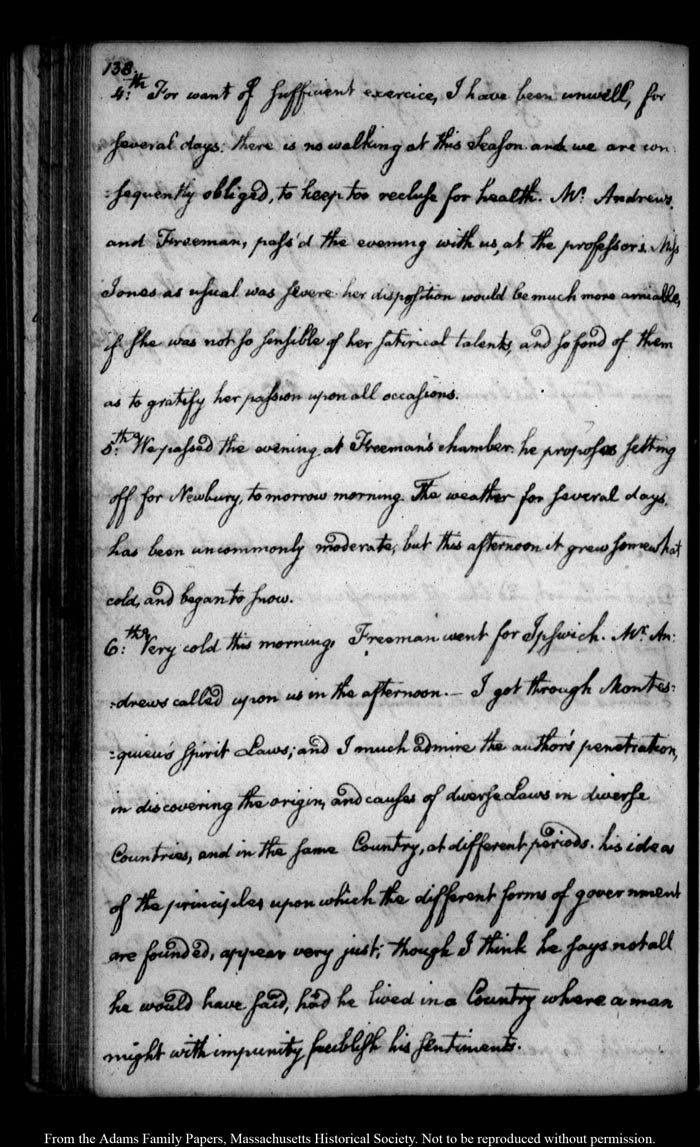 138.
4.th For want of sufficient exercice, I have been unwell, for
several days: there is no walking at this season and we are con:
:sequently obliged, to keep too recluse for health. Mr. Andrews,
and Freeman, pass'd the evening with us, at the professor's. Miss
Jones as usual was severe: her disposition would be much more amiable,
if she was not so sensible of her satirical talents, and so fond of them
as to gratify her passion upon all occasions.
5.th We passed the evening at Freeman's chamber: he proposes setting
off for Newbury, to morrow morning. The weather for several days,
has been uncommonly moderate, but this afternoon it grew somewhat
cold, and began to snow.
6.th Very cold this morning, Freeman went for Ipswich. Mr. An:
:drews called upon us in the afternoon.— I got through Montes:
:quieu's spirit Laws; and I much admire the author's penetration,
in discovering the origin, and causes of diverse Laws in diverse
Countries, and in the same Country, at different periods. his ideas
of the principles upon which the different forms of government
are founded, appear very just; though I think he says not all
he would have said, had he lived in a Country where a man
might with impunity publish his sentiments.
From the Adams Family Papers, Massachusetts Historical Society. Not to be reproduced without permission.